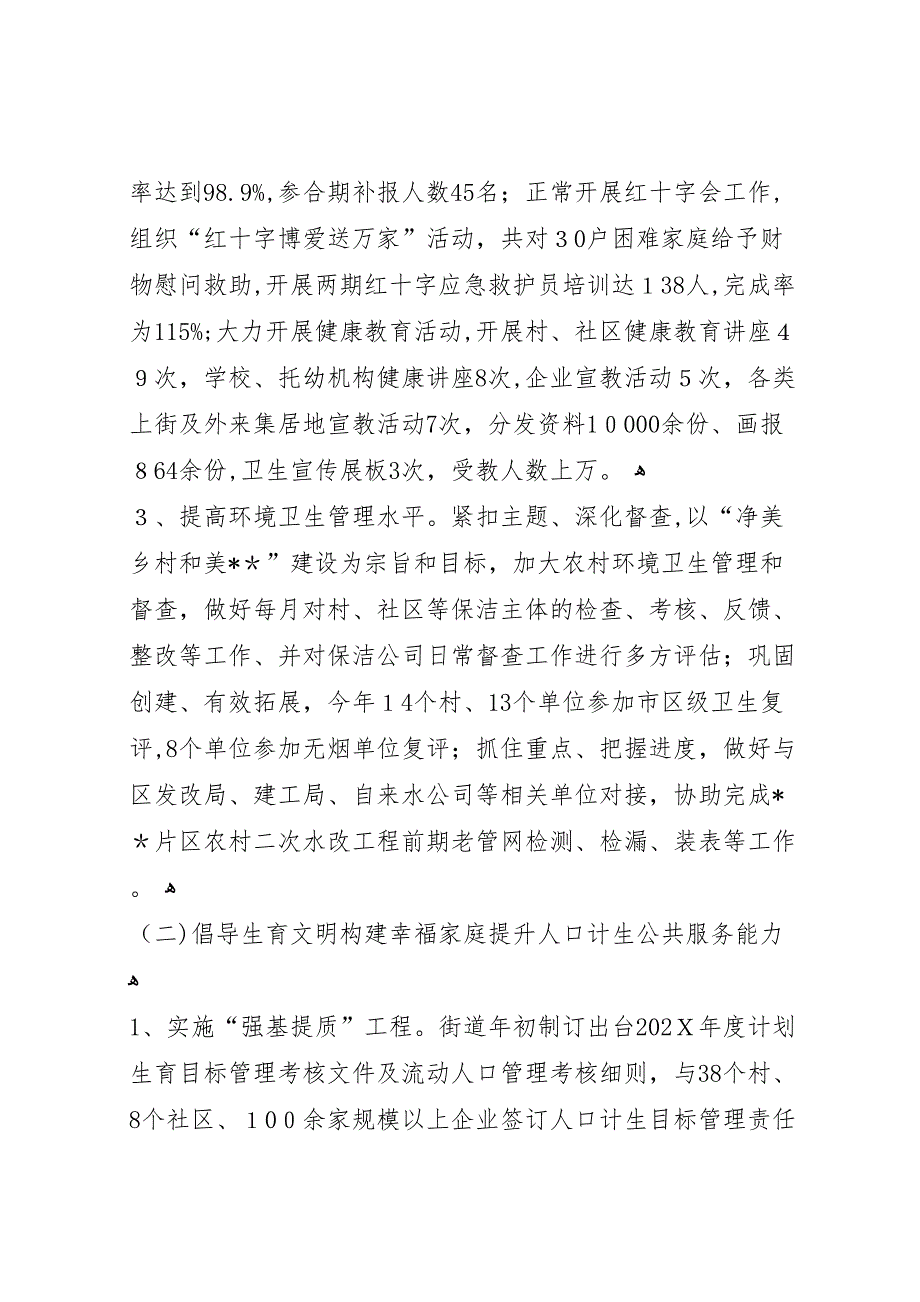 率达到98.9%,参合期补报人数45名；正常开展红十字会工作,
组织“红十字博爱送万家”活动，共对３0户困难家庭给予财
物慰问救助,开展两期红十字应急救护员培训达１38人,完成率
为115%;大力开展健康教育活动,开展村、社区健康教育讲座４
９次，学校、托幼机构健康讲座8次,企业宣教活动５次，各类
上街及外来集居地宣教活动7次，分发资料1０000余份、画报
８64余份,卫生宣传展板3次，受教人数上万。 ﻫ
３、提高环境卫生管理水平。紧扣主题、深化督查,以“净美
乡村和美*＊”建设为宗旨和目标，加大农村环境卫生管理和
督查，做好每月对村、社区等保洁主体的检查、考核、反馈、
整改等工作、并对保洁公司日常督查工作进行多方评估；巩固
创建、有效拓展，今年１4个村、13个单位参加市区级卫生复
评,8个单位参加无烟单位复评；抓住重点、把握进度，做好与
区发改局、建工局、自来水公司等相关单位对接，协助完成*
＊片区农村二次水改工程前期老管网检测、检漏、装表等工作
。 ﻫ
（二)倡导生育文明构建幸福家庭提升人口计生公共服务能力
ﻫ
1、实施“强基提质”工程。街道年初制订出台202Ｘ年度计划
生育目标管理考核文件及流动人口管理考核细则，与38个村、
8个社区、１0０余家规模以上企业签订人口计生目标管理责任